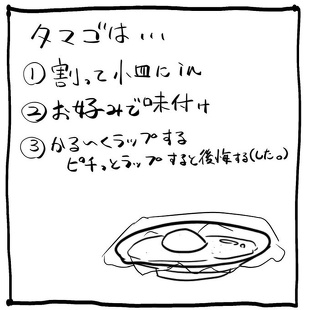 タマゴは・・・
①割って小皿にin
②お好みで味付け
③かる〜くラップする
ピチッとラップすると後悔する(した。)